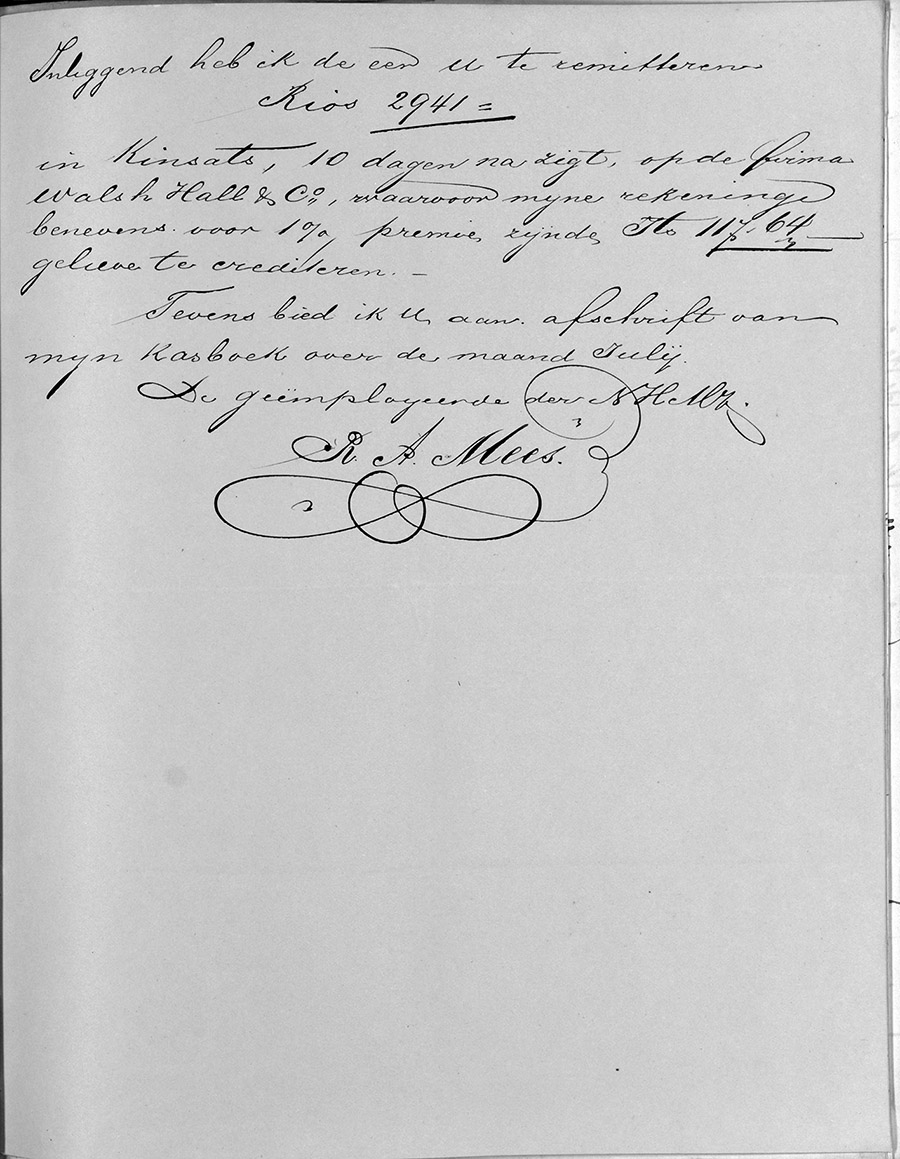 Inliggend heb ik de eer U te remitteren
Rios 2941 =
in Kinsats, 10 dagen na zigt, op de firma
Walsh Hall & Co, waarvoor myne rekening
benevens voor 1% premie, zynde, Its 117.64
gelieve te crediteren. —
Tevens bied ik U aan afschrift van
myn kasboek over de maand July.
De geëmployeerde der N H Mij.
R. A. Mees.